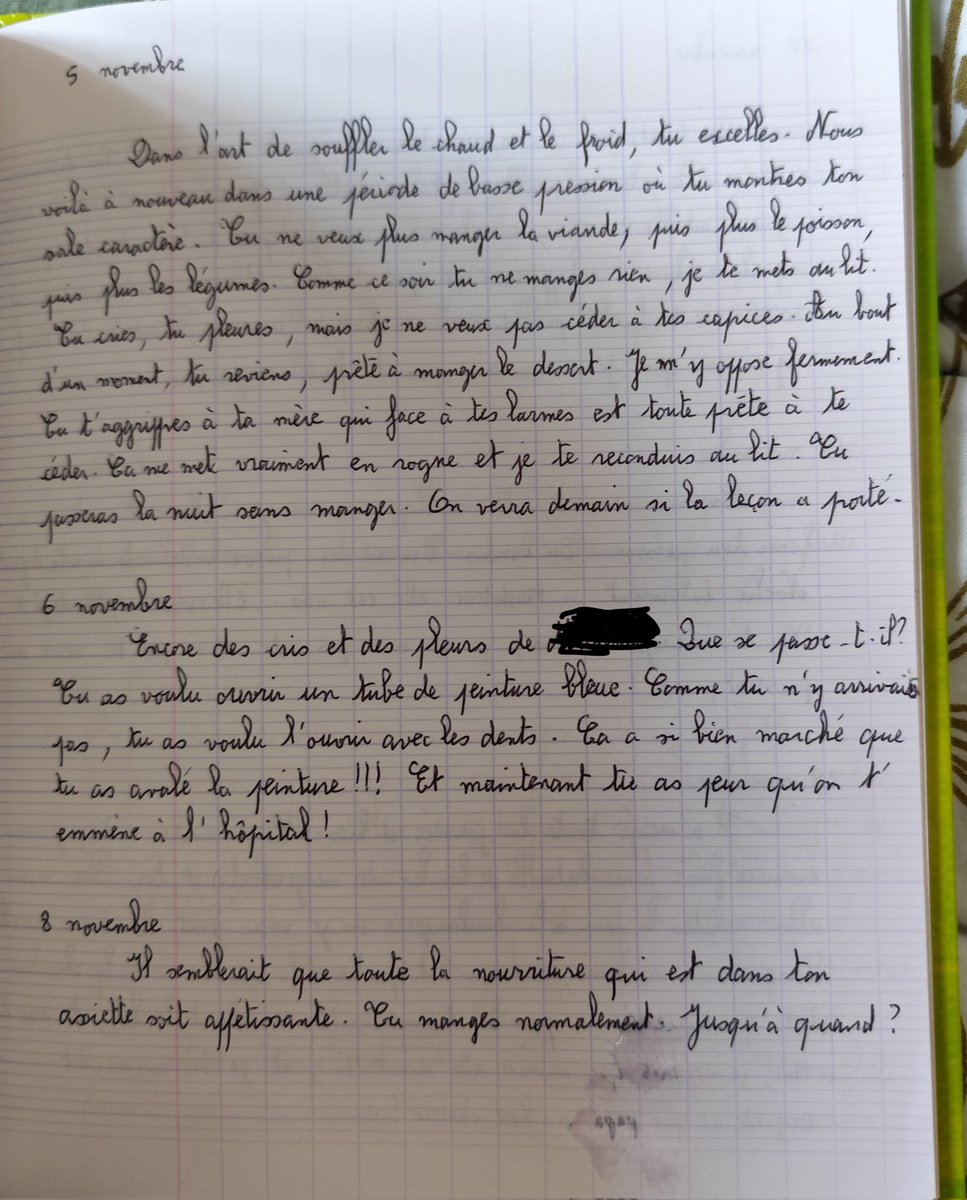 5 novembre
Dans l'art de souffler le chaud et le froid, tu excelles. Nous
voilà à nouveau dans une période de basse pression où tu montres ton
sale caractère. Tu ne veux plus manger la viande, puis plus le poisson,
puis plus les légumes. Comme ce soir tu ne manges rien, je te mets au lit.
Tu cries, tu pleures, mais je ne veux pas céder à tes capices. Au bout
d'un moment, tu reviens, prêt à manger le dessert. Je m'y oppose fermement.
Tu t'aggrippes à ta mère qui face à tes larmes est toute prête à te
céder. Ça me met vraiment en rogne et je te reconduis au lit. Tu
passeras la nuit sans manger. On verra demain si la leçon a porté.
6 novembre
Encore des cris et des pleurs de Que se passe-t-il?
Tu as voulu ouvrir un tube de peinture bleue. Comme tu n'y arrivais
pas, tu as voulu l'ouvrir avec les dents. Ça a si bien marché que
tu as avalé la peinture!!! Et maintenant tu as peur qu'on t'
emmène à l'hôpital!
8 novembre
Il semblerait que toute la nourriture qui est dans ton
assiette soit appétissante. Tu manges normalement. Jusqu'à quand?
papa